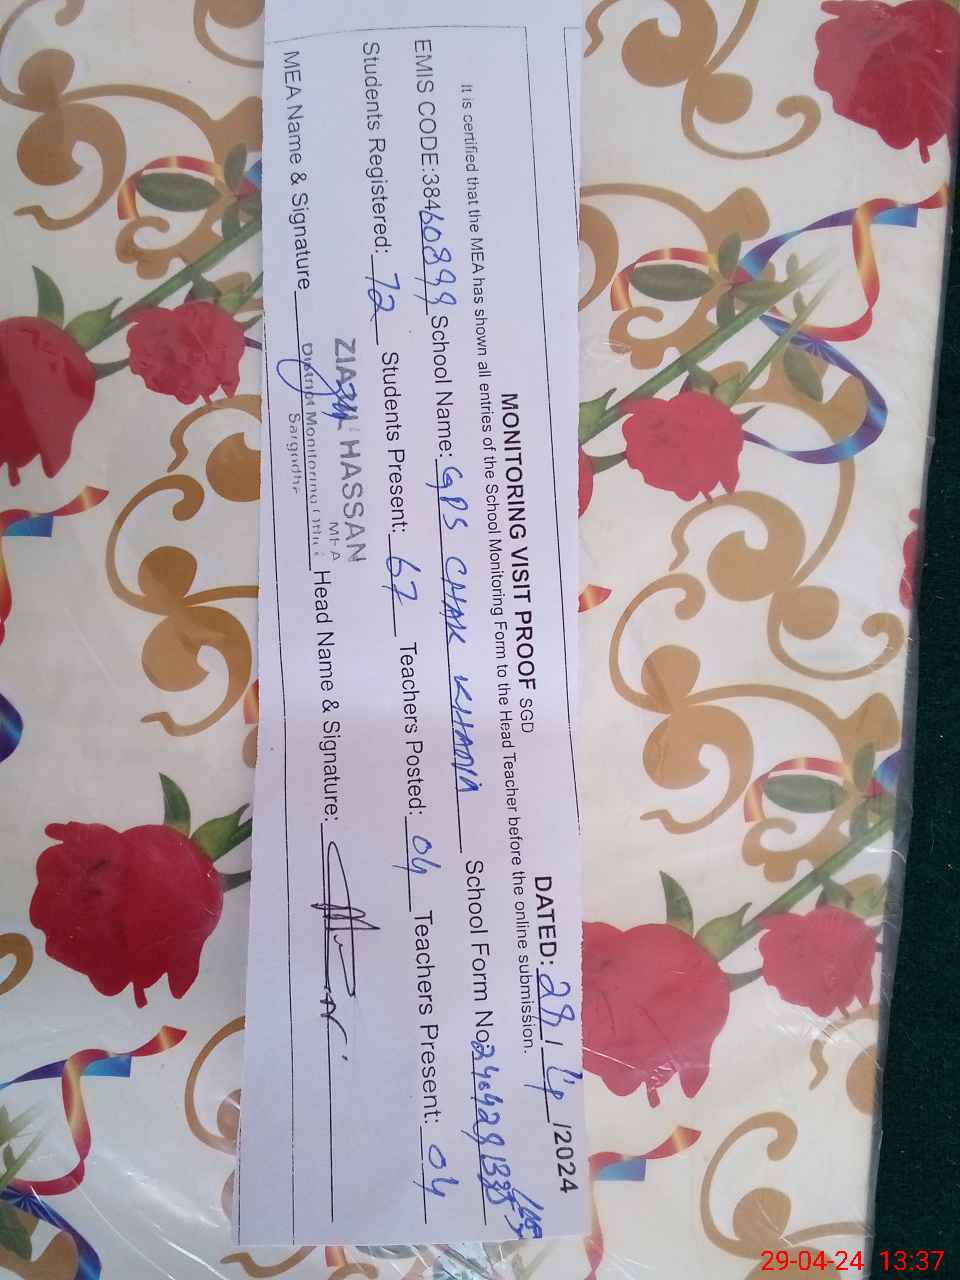 MONITORING VISIT PROOF SGD DATED: 29 / 4 /2024
It is certified that the MEA has shown all entries of the School Monitoring Form to the Head Teacher before the online submission.
EMIS CODE:38460899 School Name: GPS CHAK KHANA School Form No: 240429
Students Registered: 72 Students Present: 67 Teachers Posted: 04 Teachers Present: 04
HASSAN
MEA
MEA Name & Signature Head Name & Signature:
District Monitoring
Sargodha
29-04-24 13:37